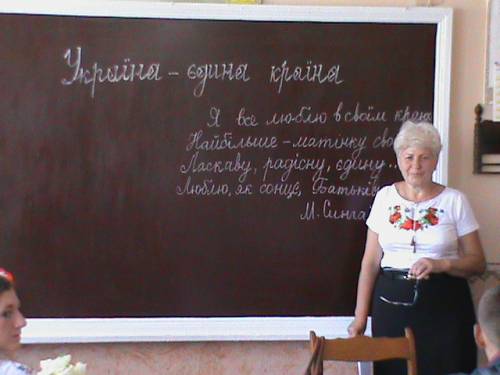 Україна – єдина країна
Я все люблю в своїм краю
Найбільше – матінку
Ласкаву, радісну, єдину...
Люблю, як сонце,
М.